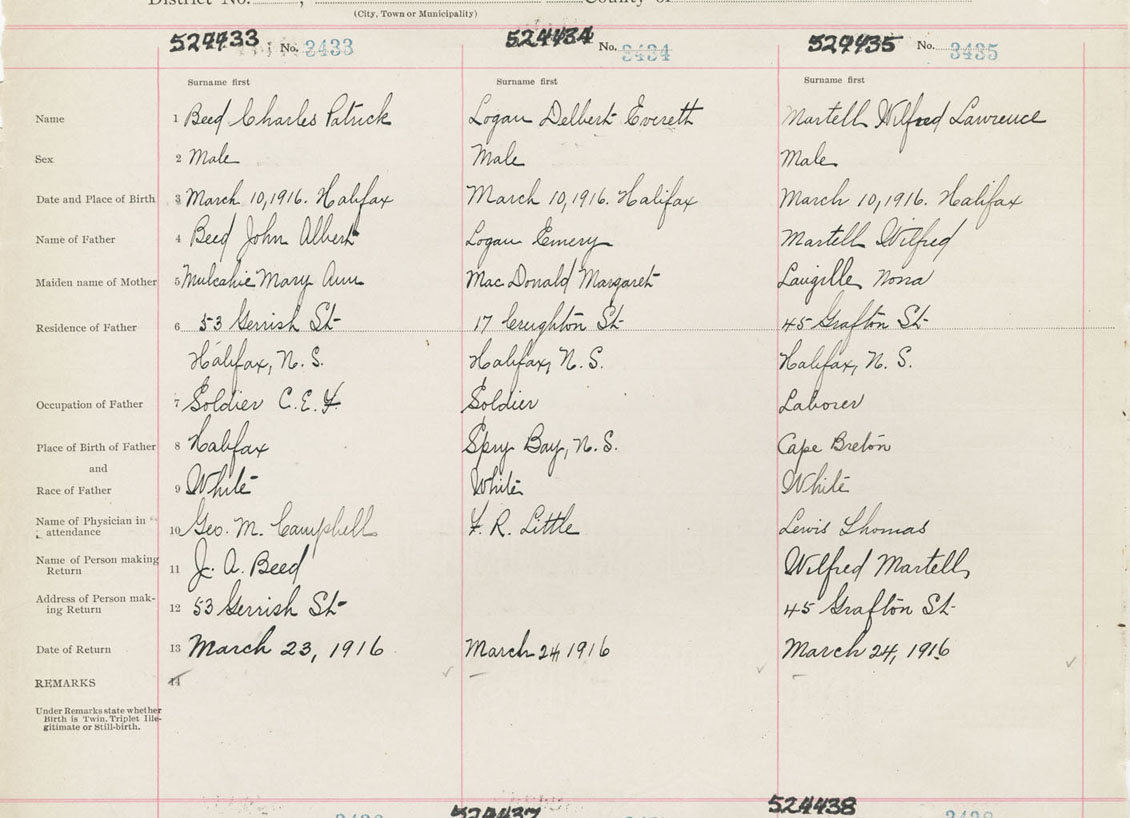 District No. , County of
(City, Town or Municipality)
524433 No. 3433 524434 No. 3434 524435 No. 3435
Surname first Surname first Surname first
Name 1 Beed Charles Patrick Logan Delbert Everett Martell Wilfred Lawrence
Sex 2 Male Male Male
Date and Place of Birth 3 March 10, 1916. Halifax March 10, 1916. Halifax March 10, 1916. Halifax
Name of Father 4 Beed John Albert Logan Emery Martell Wilfred
Maiden name of Mother 5 Mulcahie Mary Ann Mac Donald Margaret Laugille Nona
Residence of Father 6 53 Gerrish St 17 Creighton St 45 Grafton St
Halifax, N. S. Halifax, N. S. Halifax, N. S.
Occupation of Father 7 Soldier C. E. F. Soldier Laborer
Place of Birth of Father 8 Halifax Spry Bay, N. S. Cape Breton
and
Race of Father 9 White White White
Name of Physician in attendance 10 Geo. M. Campbell F. R. Little Lewis Thomas
Name of Person making Return 11 J. A. Beed Wilfred Martell
Address of Person mak-
ing Return 12 53 Gerrish St 45 Grafton St
Date of Return 13 March 23, 1916 March 24, 1916 March 24, 1916
REMARKS 14
Under Remarks state whether
Birth is Twin, Triplet Ille-
gitimate or Still-birth.
524437 524438